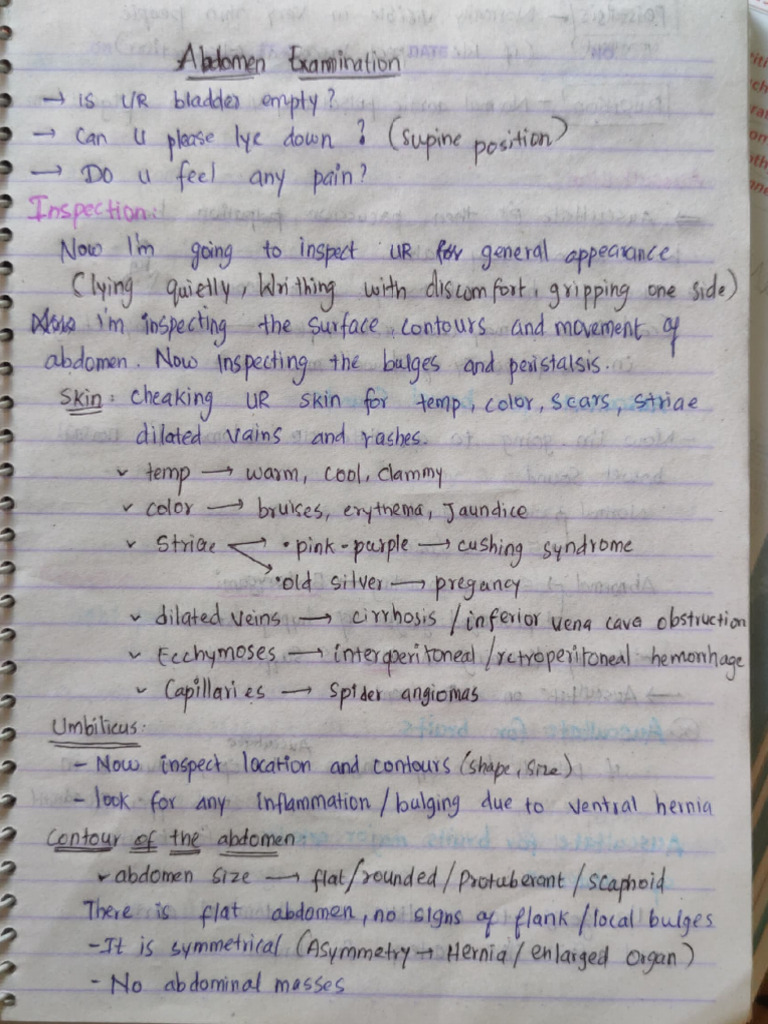 Abdomen Examination
→ Is UR bladder empty?
→ Can u please lye down? (supine position)
→ Do u feel any pain?
Inspection:
Now I'm going to inspect UR for general appearance
(lying quietly, Writhing with discomfort, gripping one side)
Now i'm inspecting the surface, contours and movement of
abdomen. Now inspecting the bulges and peristalsis.
Skin: cheaking UR skin for temp, color, scars, striae
dilated vains and rashes.
✓ temp → warm, cool, clammy
✓ color → bruises, erythema, Jaundice
✓ Striae → • pink-purple → cushing syndrome
→ • old silver → pregancy
✓ dilated veins → cirrhosis / inferior vena cava obstruction
✓ Ecchymoses → interperitoneal / retroperitoneal hemorrhage
✓ Capillaries → Spider angiomas
Umbilicus:
- Now inspect location and contours (shape, size)
- look for any inflammation / bulging due to ventral hernia
Contour of the abdomen
✓ abdomen size → flat/rounded/Protuberant/scaphoid
There is flat abdomen, no signs of flank / local bulges
- It is symmetrical (Asymmetry → Hernia / enlarged Organ)
- No abdominal masses